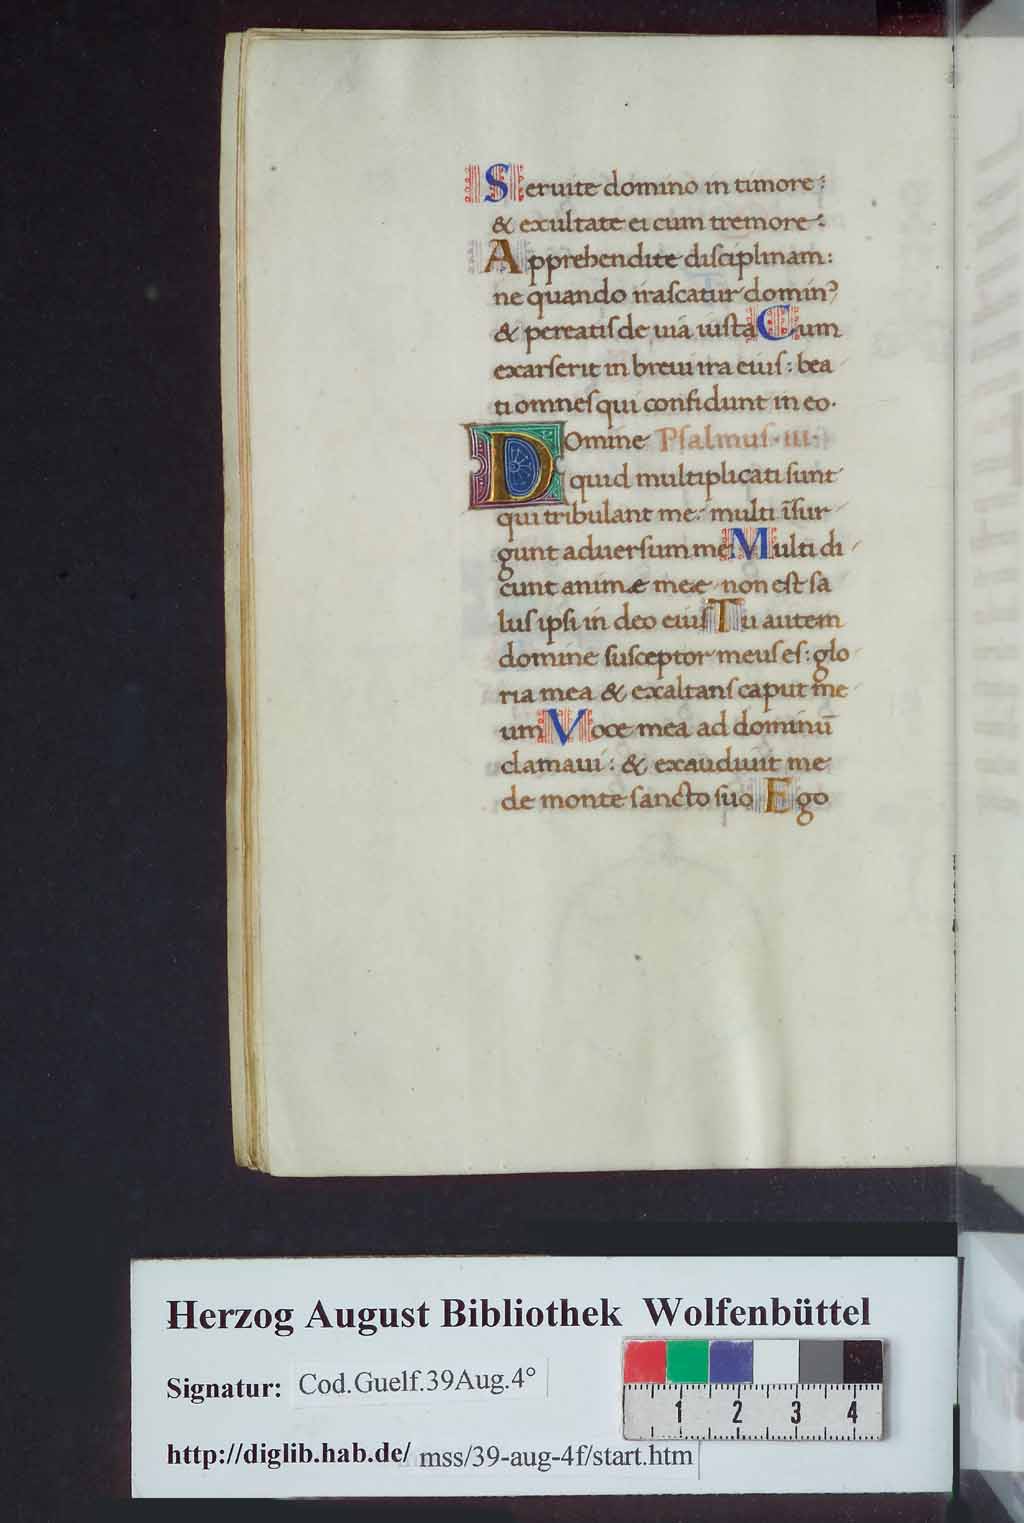 Seruite domino in timore:
& exultate ei cum tremore:
Apprehendite disciplinam:
ne quando irascatur domin⁹
& pereatis de uia iusta Cum
exarserit in breui ira eius: bea
ti omnes qui confidunt in eo.
Domine Psalmus·iii·
quid multiplicati sunt
qui tribulant me: multi īsur
gunt aduersum me Multi di
cunt animæ meæ non est sa
lus ipsi in deo eius Tu autem
domine susceptor meus es: glo
ria mea & exaltans caput me
um Voce mea ad dominū
clamaui: & exaudiuit me
de monte sancto suo Ego
Herzog August Bibliothek Wolfenbüttel
Signatur: Cod.Guelf.39Aug.4°
1 2 3 4
http://diglib.hab.de/ mss/39-aug-4f/start.htm